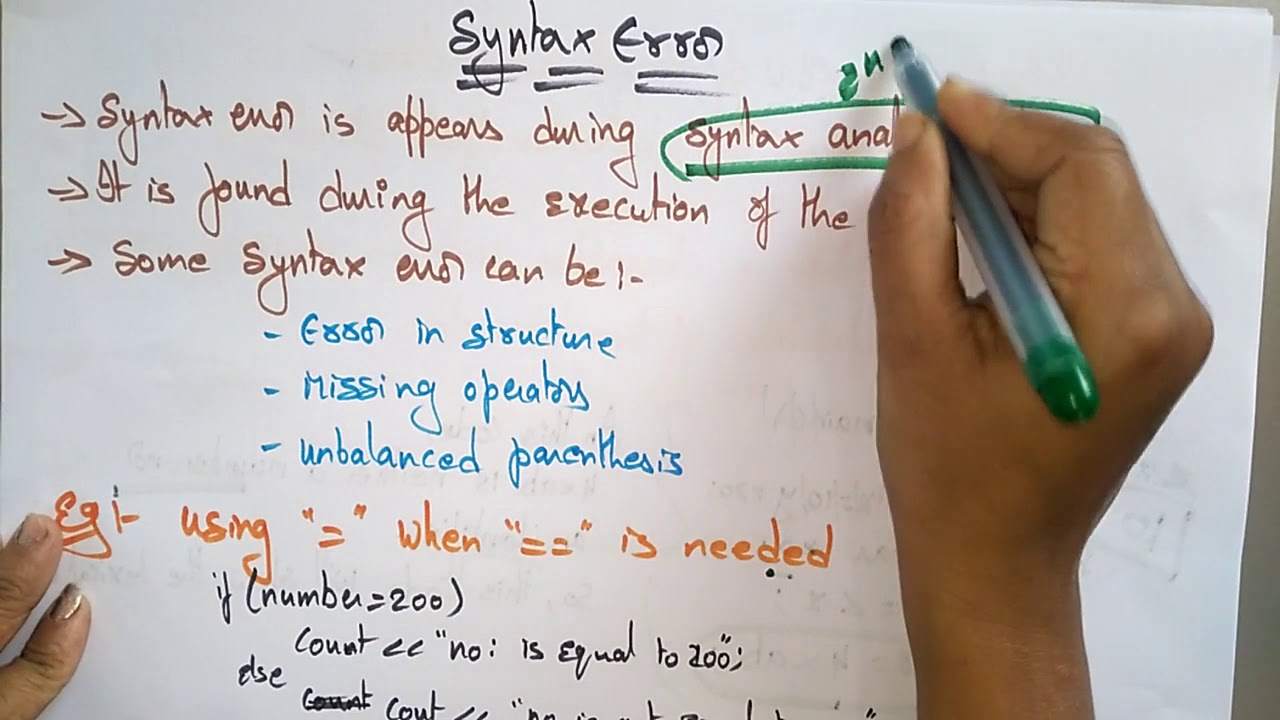 Syntax Error
2n
→ Syntax error is appears during syntax ana
→ It is found during the execution of the
→ Some Syntax error can be :-
- Error in structure
- Missing operators
- unbalanced parenthesis
Eg:- using "=" when "==" is needed
if (number=200)
count << "no: is equal to 200";
else
cout << "no is not equal to